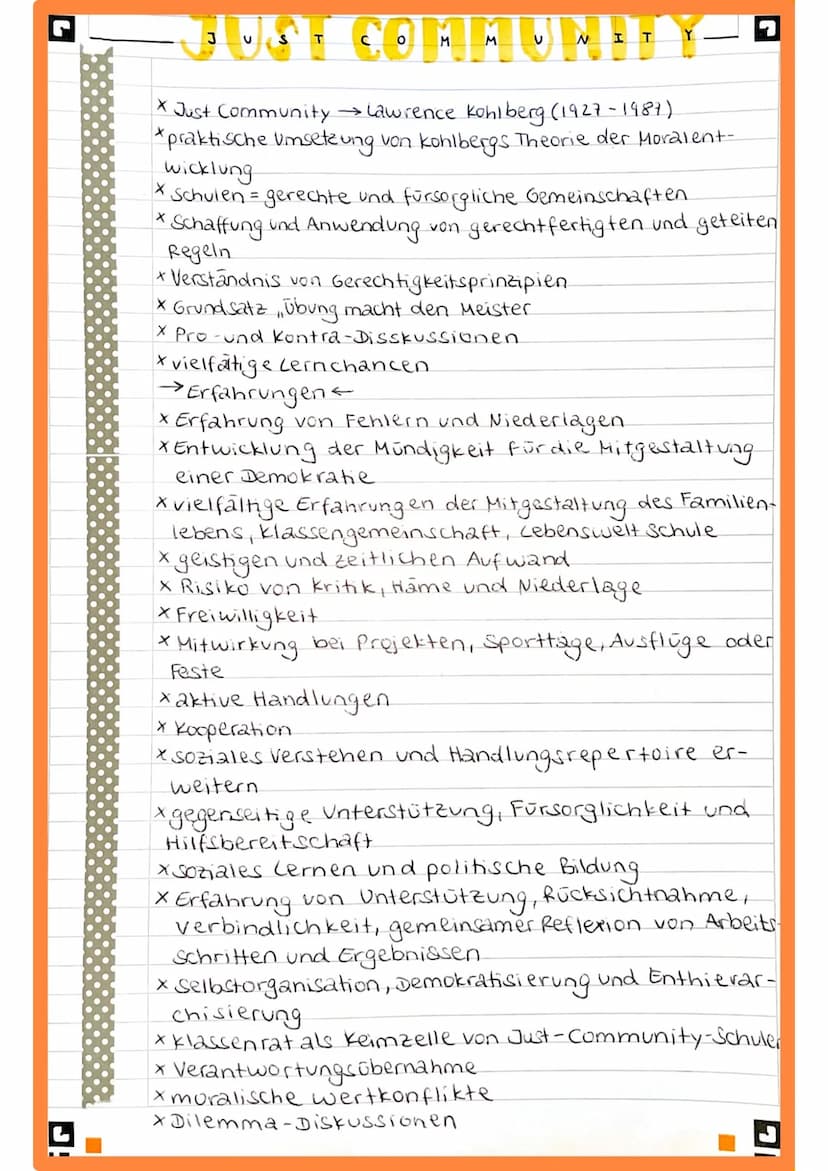 JUST COMMUNITY
JUST COMMUNITY
x Just Community → Lawrence Kohlberg (1927-1987)
x praktische Umsetzung von Kohlbergs Theorie der Moralent-
wicklung
x Schulen = gerechte und fürsorgliche Gemeinschaften
x Schaffung und Anwendung von gerechtfertigten und geteiten
Regeln
x Verständnis von Gerechtigkeitsprinzipien
x Grundsatz „Übung macht den Meister
x Pro- und Kontra-Disskussionen
x vielfätige Lernchancen
→ Erfahrungen ←
x Erfahrung von Fehlern und Niederlagen
x Entwicklung der Mündigkeit für die Mitgestaltung
einer Demokratie
x vielfältige Erfahrungen der Mitgestaltung des Familien-
lebens, Klassengemeinschaft, Lebenswelt Schule
x geistigen und zeitlichen Aufwand
x Risiko von Kritik, Häme und Niederlage
x Freiwilligkeit
x Mitwirkung bei Projekten, Sporttage, Ausflüge oder
Feste
x aktive Handlungen
x Kooperation
x soziales Verstehen und Handlungsrepertoire er-
weitern
x gegenseitige Unterstützung, Fürsorglichkeit und
Hilfsbereitschaft
x soziales Lernen und politische Bildung
x Erfahrung von Unterstützung, Rücksichtnahme,
Verbindlichkeit, gemeinsamer Reflexion von Arbeits-
schritten und Ergebnissen
x Selbstorganisation, Demokratisierung und Enthierar-
chisierung
x Klassenrat als Keimzelle von Just-Community-Schulen
x Verantwortungsübernahme
x moralische Wertkonflikte
x Dilemma-Diskussionen